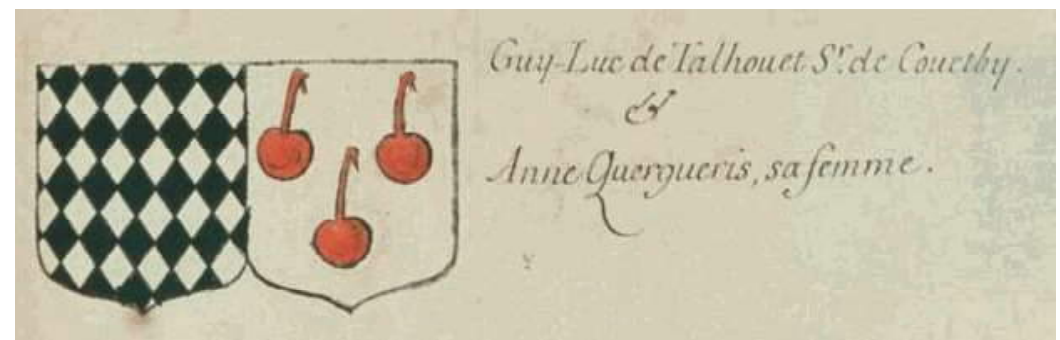 Guy-Luc de Talhouet Sr. de Couetby.
&
Anne Quergueris, sa femme.